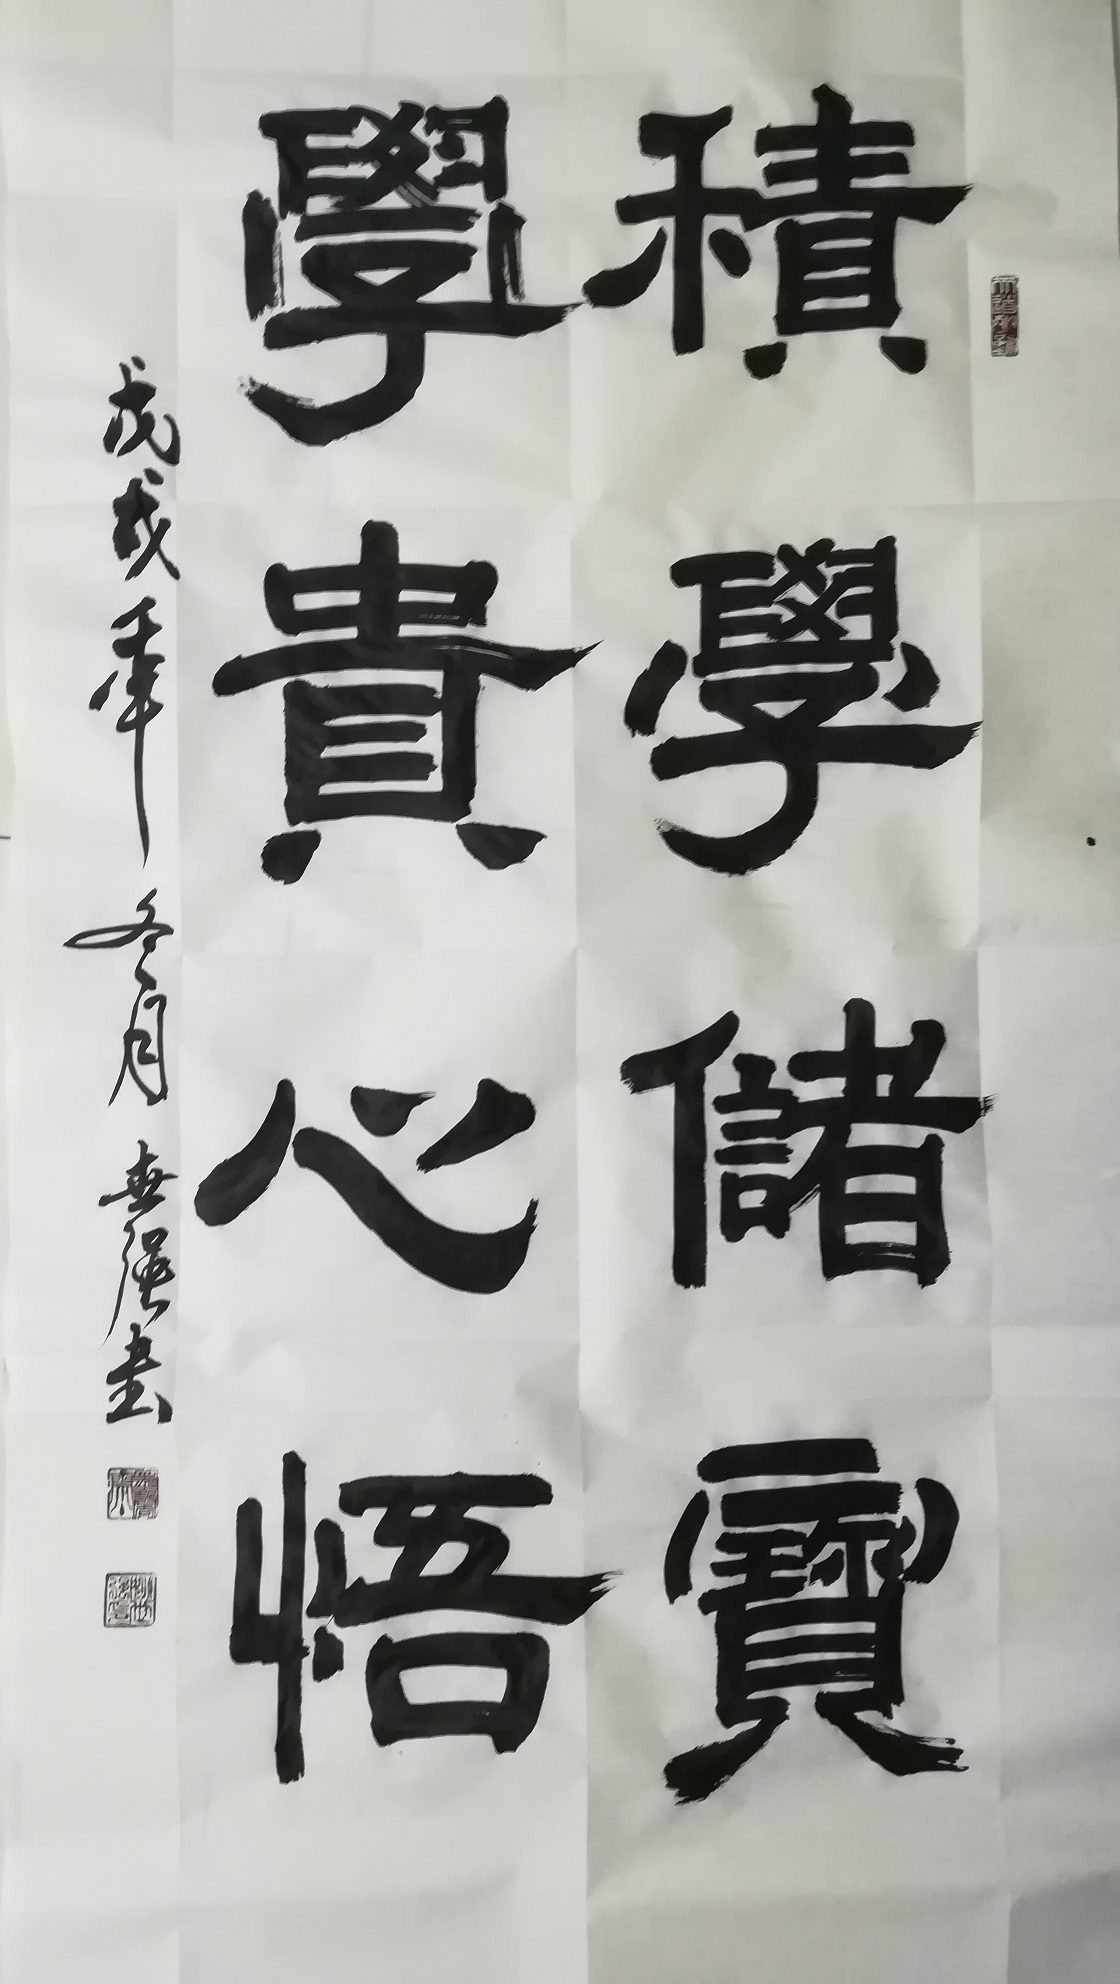 積學儲寶
學貴心悟
戊戌年冬月世强书